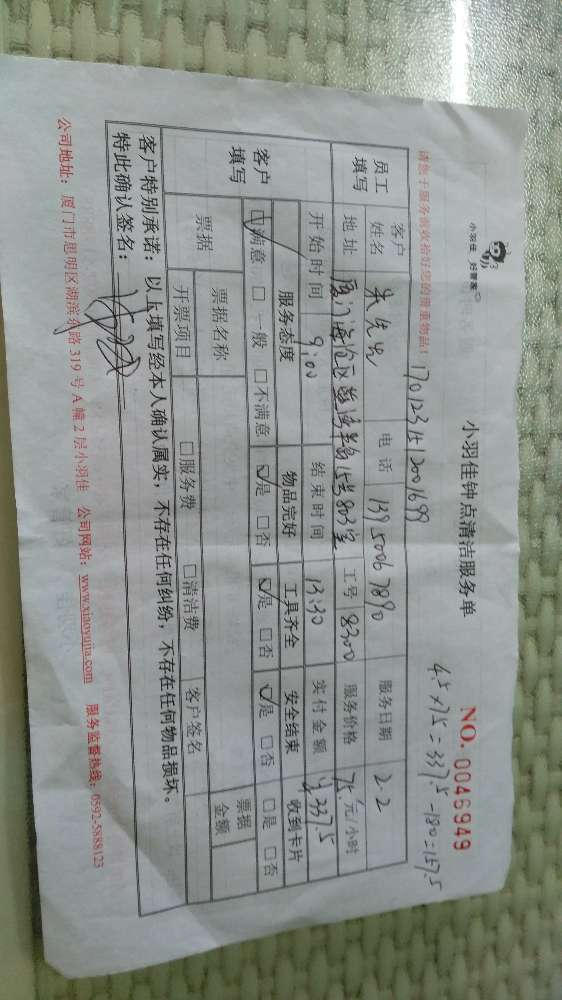 小羽佳 好管家
小羽佳钟点清洁服务单
NO. 0046949
4.5×75=337.5-180=157.5
请您于服务前收拾好您的贵重物品!
员工填写
客户姓名
朱先生
电话
13950067890
服务日期
2.2
地址
15号803室
工号
8300
服务价格
75元/小时
开始时间
9:00
结束时间
13:30
实付金额
¥337.5
客户填写
服务态度
物品完好
工具齐全
安全结束
收到卡片
☑满意 □一般 □不满意
☑是 □否
☑是 □否
☑是 □否
□是 □否
票据
票据名称
票据金额
开票项目
□服务费
□清洁费
客户签名
客户特别承诺:以上填写经本人确认属实,不存在任何纠纷,不存在任何物品损坏。
特此确认签名:
公司地址:厦门市思明区湖滨东路319号A幢2层小羽佳 公司网站:www.xiaoyujia.com 服务监督热线:0592-5888123